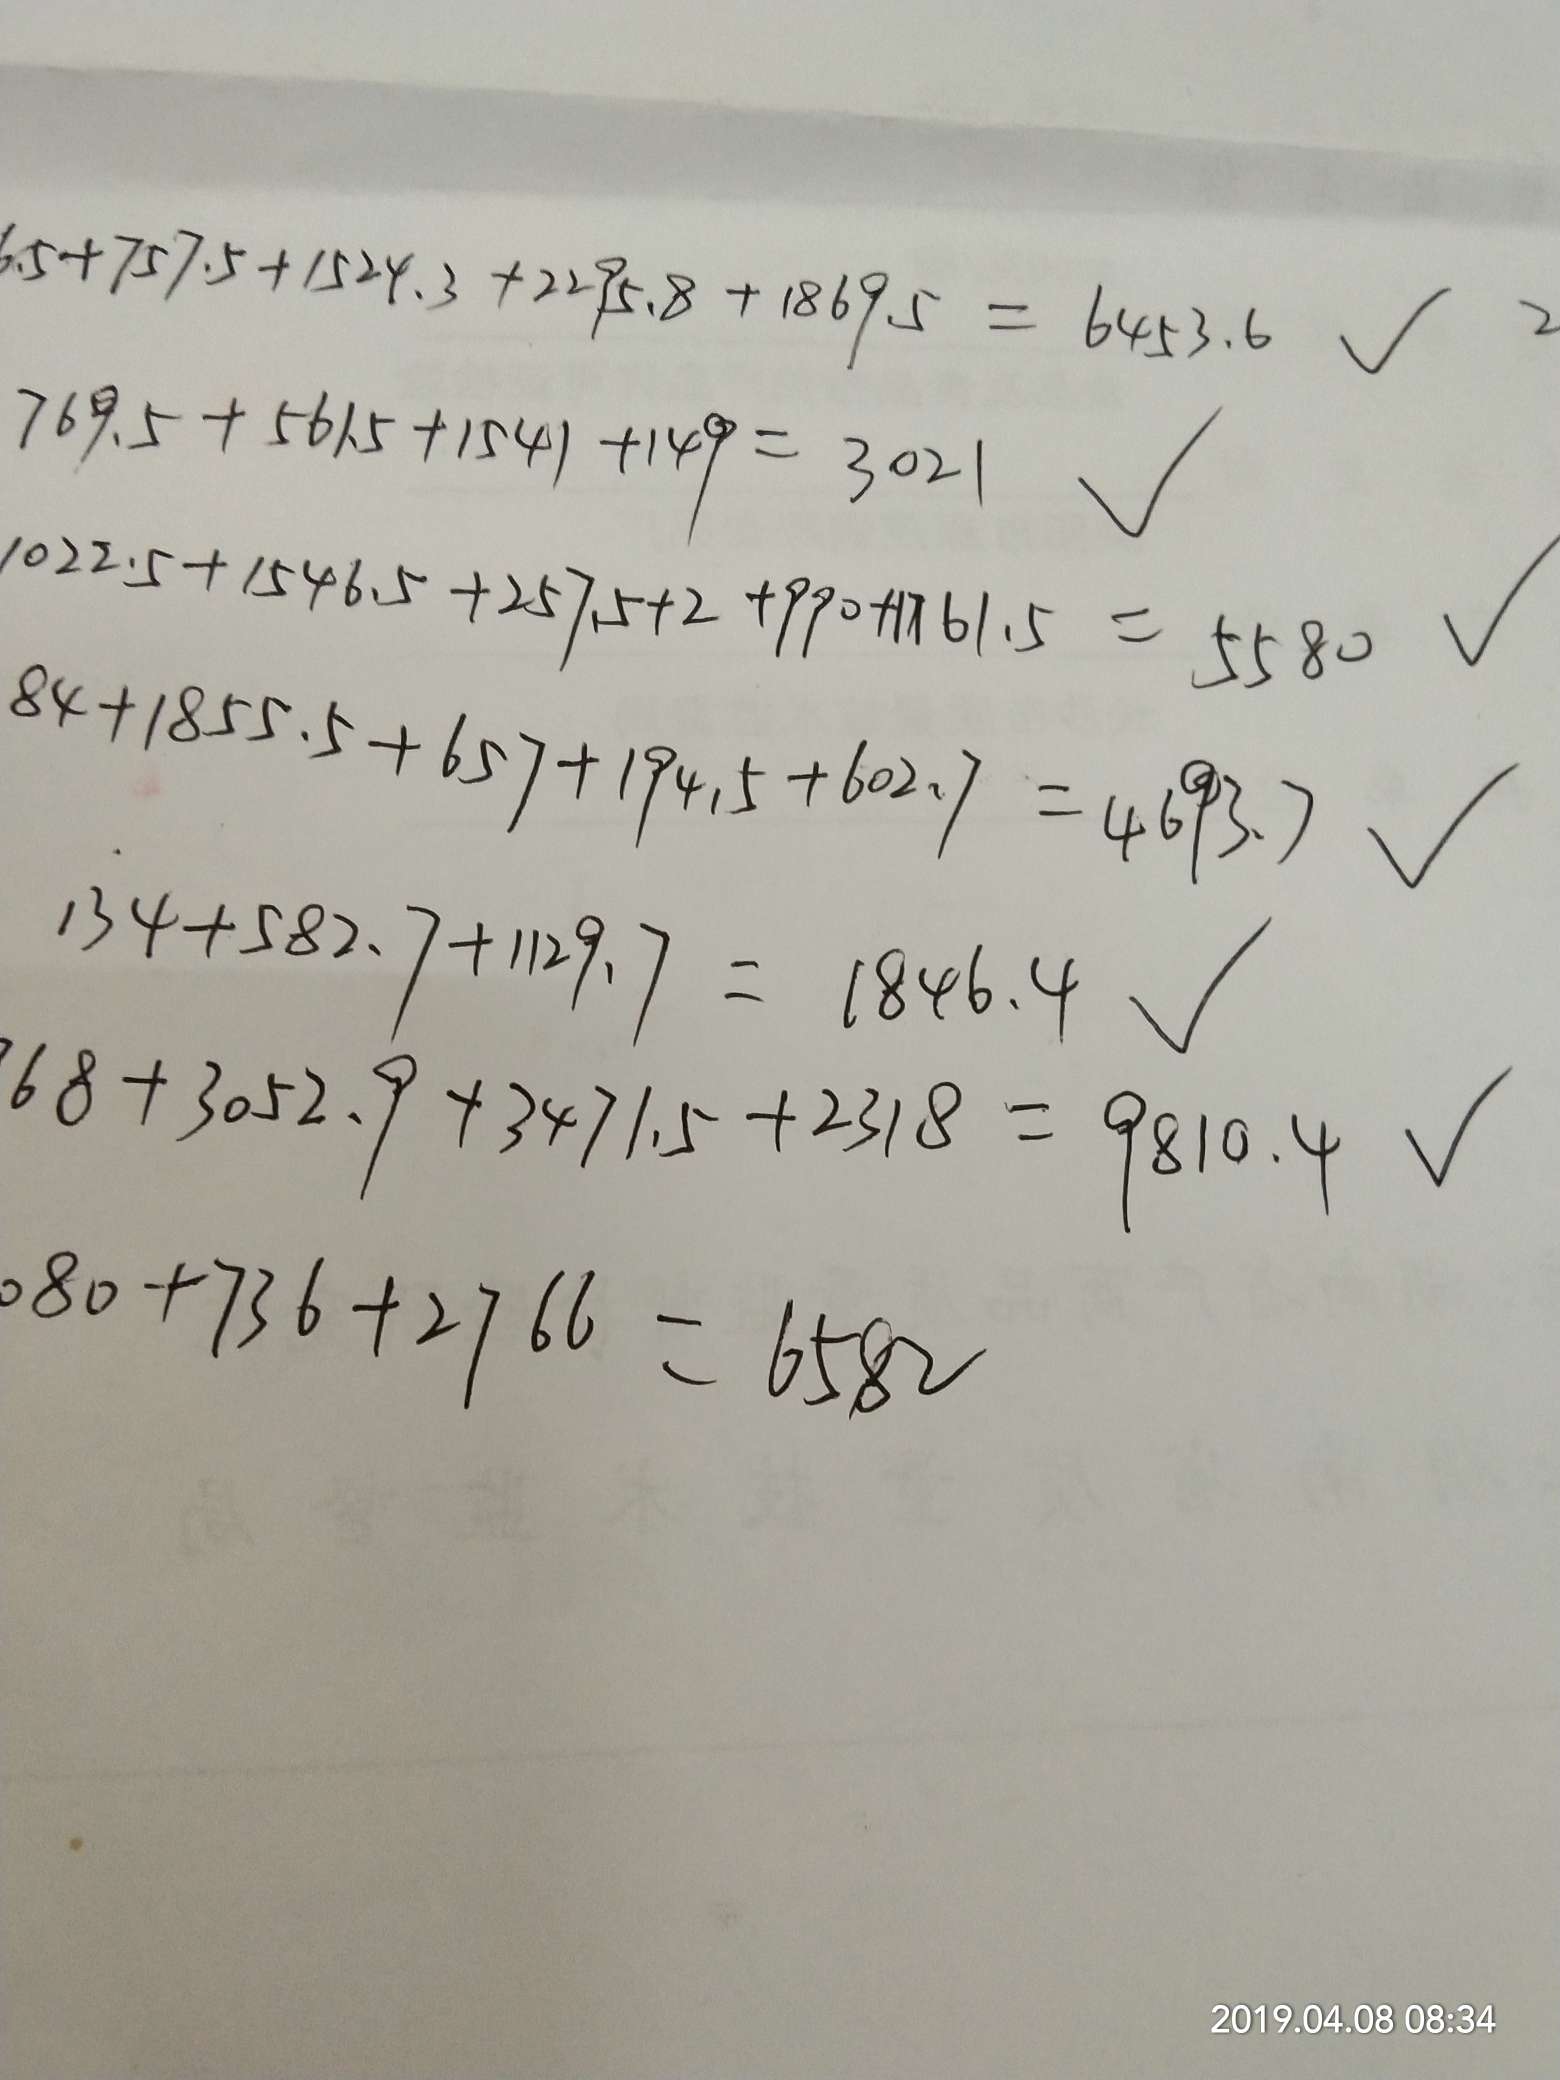 6.5+757.5+1524.3+2295.8+1869.5=6453.6 ✓ 2
769.5+561.5+1541+149=3021 ✓
1022.5+1546.5+257.5+2+990+1761.5=5580 ✓
84+1855.5+657+194.5+602.7=4693.7 ✓
134+582.7+1129.7=1846.4 ✓
968+3052.9+3471.5+2318=9810.4 ✓
080+736+2766=6582
2019.04.08 08:34